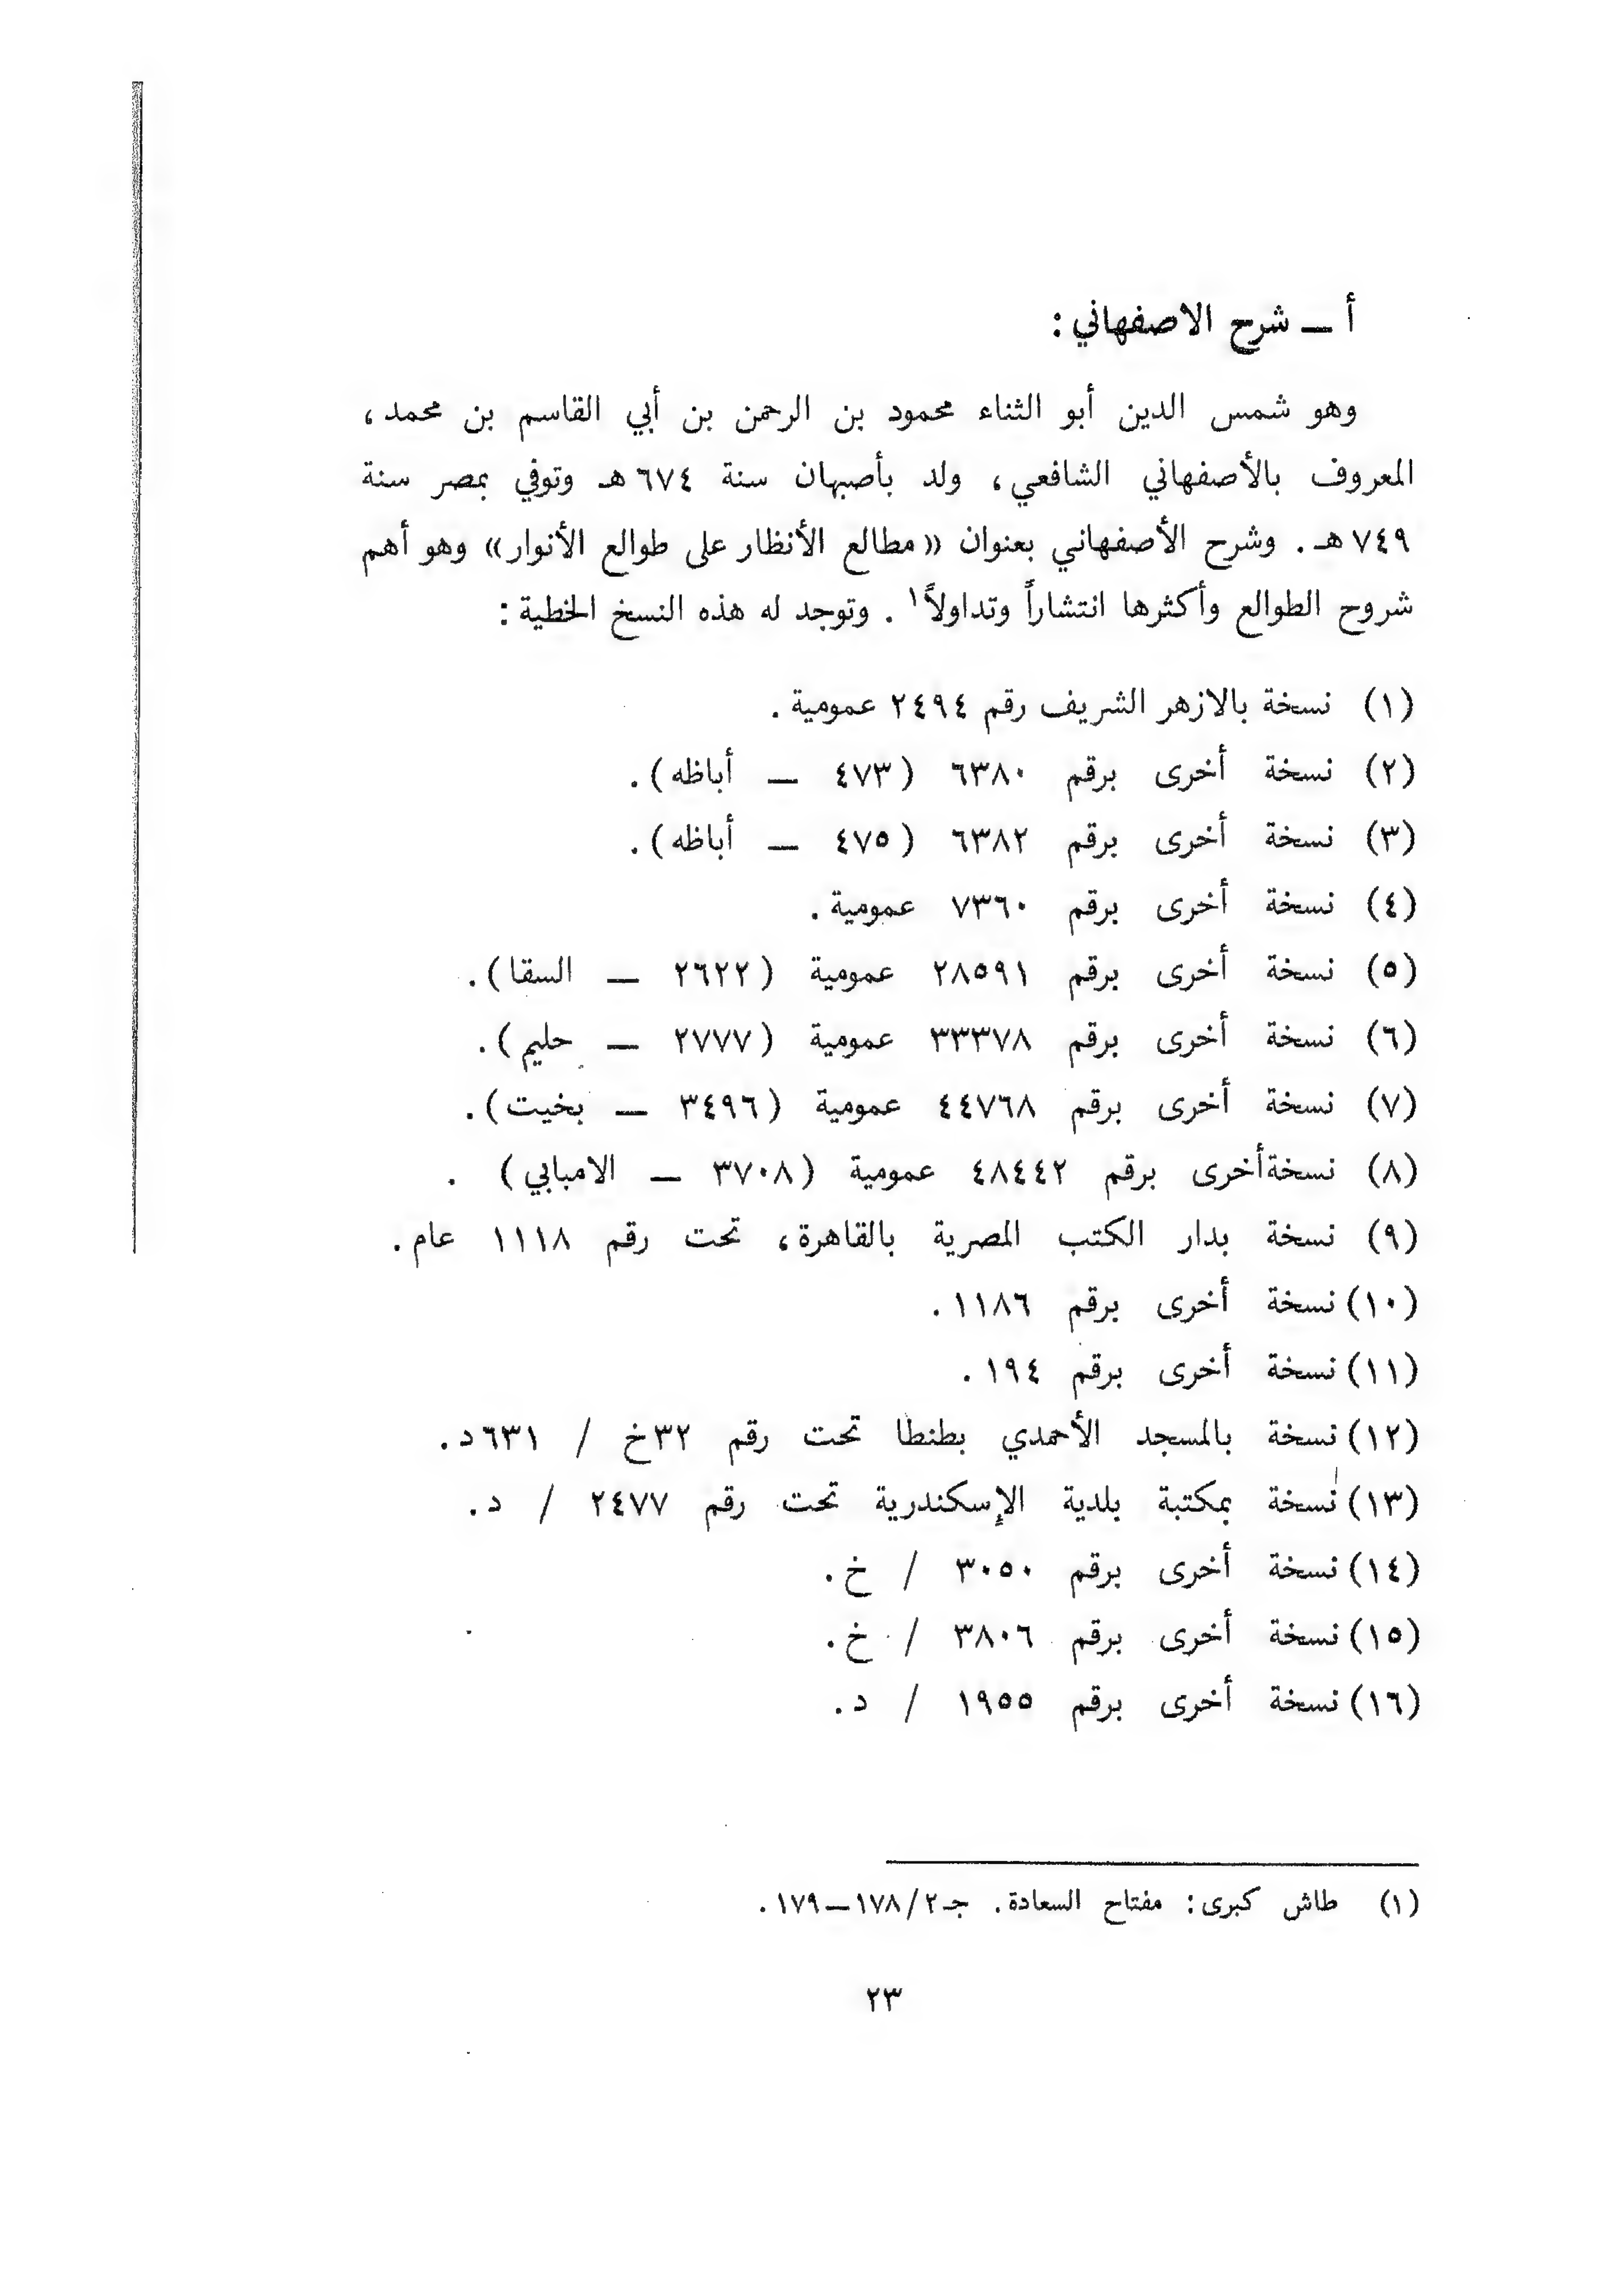 أ — شرح الاصفهاني :
وهو شمس الدين أبو الثناء محمود بن الرحمن بن أبي القاسم بن محمد ،
المعروف بالأصفهاني الشافعي ، ولد بأصبهان سنة ٦٧٤ هـ وتوفي بمصر سنة
٧٤٩ هـ . وشرح الأصفهاني بعنوان «مطالع الأنظار على طوالع الأنوار» وهو أهم
شروح الطوالع وأكثرها انتشاراً وتداولاً١ . وتوجد له هذه النسخ الخطية :
(١) نسخة بالازهر الشريف رقم ٢٤٩٤ عمومية .
(٢) نسخة أخرى برقم ٦٣٨٠ (٤٧٣ — أباظه) .
(٣) نسخة أخرى برقم ٦٣٨٢ (٤٧٥ — أباظه) .
(٤) نسخة أخرى برقم ٧٣٦٠ عمومية .
(٥) نسخة أخرى برقم ٢٨٥٩١ عمومية (٢٦٢٢ — السقا) .
(٦) نسخة أخرى برقم ٣٣٣٧٨ عمومية (٢٧٧٧ — حليم) .
(٧) نسخة أخرى برقم ٤٤٧٦٨ عمومية (٣٤٩٦ — بخيت) .
(٨) نسخةأخرى برقم ٤٨٤٤٢ عمومية (٣٧٠٨ — الامبابي) .
(٩) نسخة بدار الكتب المصرية بالقاهرة ، تحت رقم ١١١٨ عام .
(١٠) نسخة أخرى برقم ١١٨٦ .
(١١) نسخة أخرى برقم ١٩٤ .
(١٢) نسخة بالمسجد الأحمدي بطنطا تحت رقم ٣٢خ / ٦٣١د .
(١٣) نسخة بمكتبة بلدية الإسكندرية تحت رقم ٢٤٧٧ / د .
(١٤) نسخة أخرى برقم ٣٠٥٠ / خ .
(١٥) نسخة أخرى برقم ٣٨٠٦ / خ .
(١٦) نسخة أخرى برقم ١٩٥٥ / د .
(١) طاش كبرى : مفتاح السعادة . جـ٢/١٧٨—١٧٩ .
٢٣